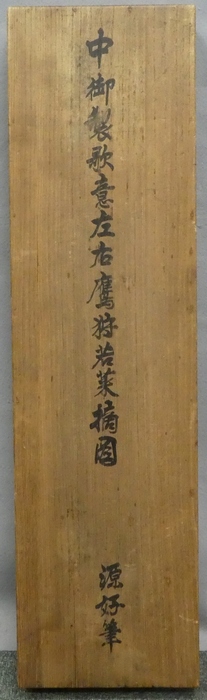 中御製歌意左右鷹狩若菜摘図
源好筆